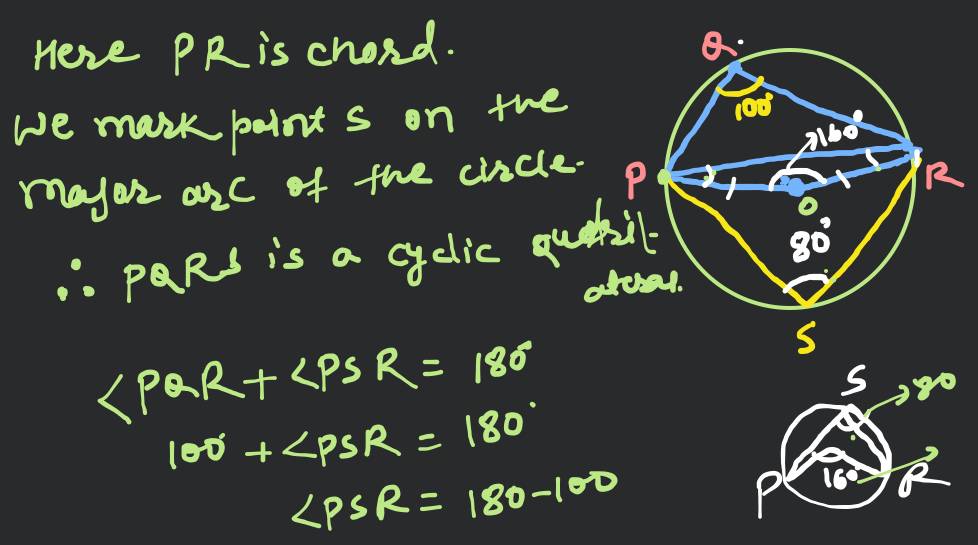 Here PR is chord.
We mark point S on the
major arc of the circle.
∴ PQRS is a cyclic quadril-
ateral.
<PQR + <PSR = 180°
100° + <PSR = 180°
<PSR = 180-100
Q
100°
160°
P
R
O
80°
S
S
80
P
160°
R